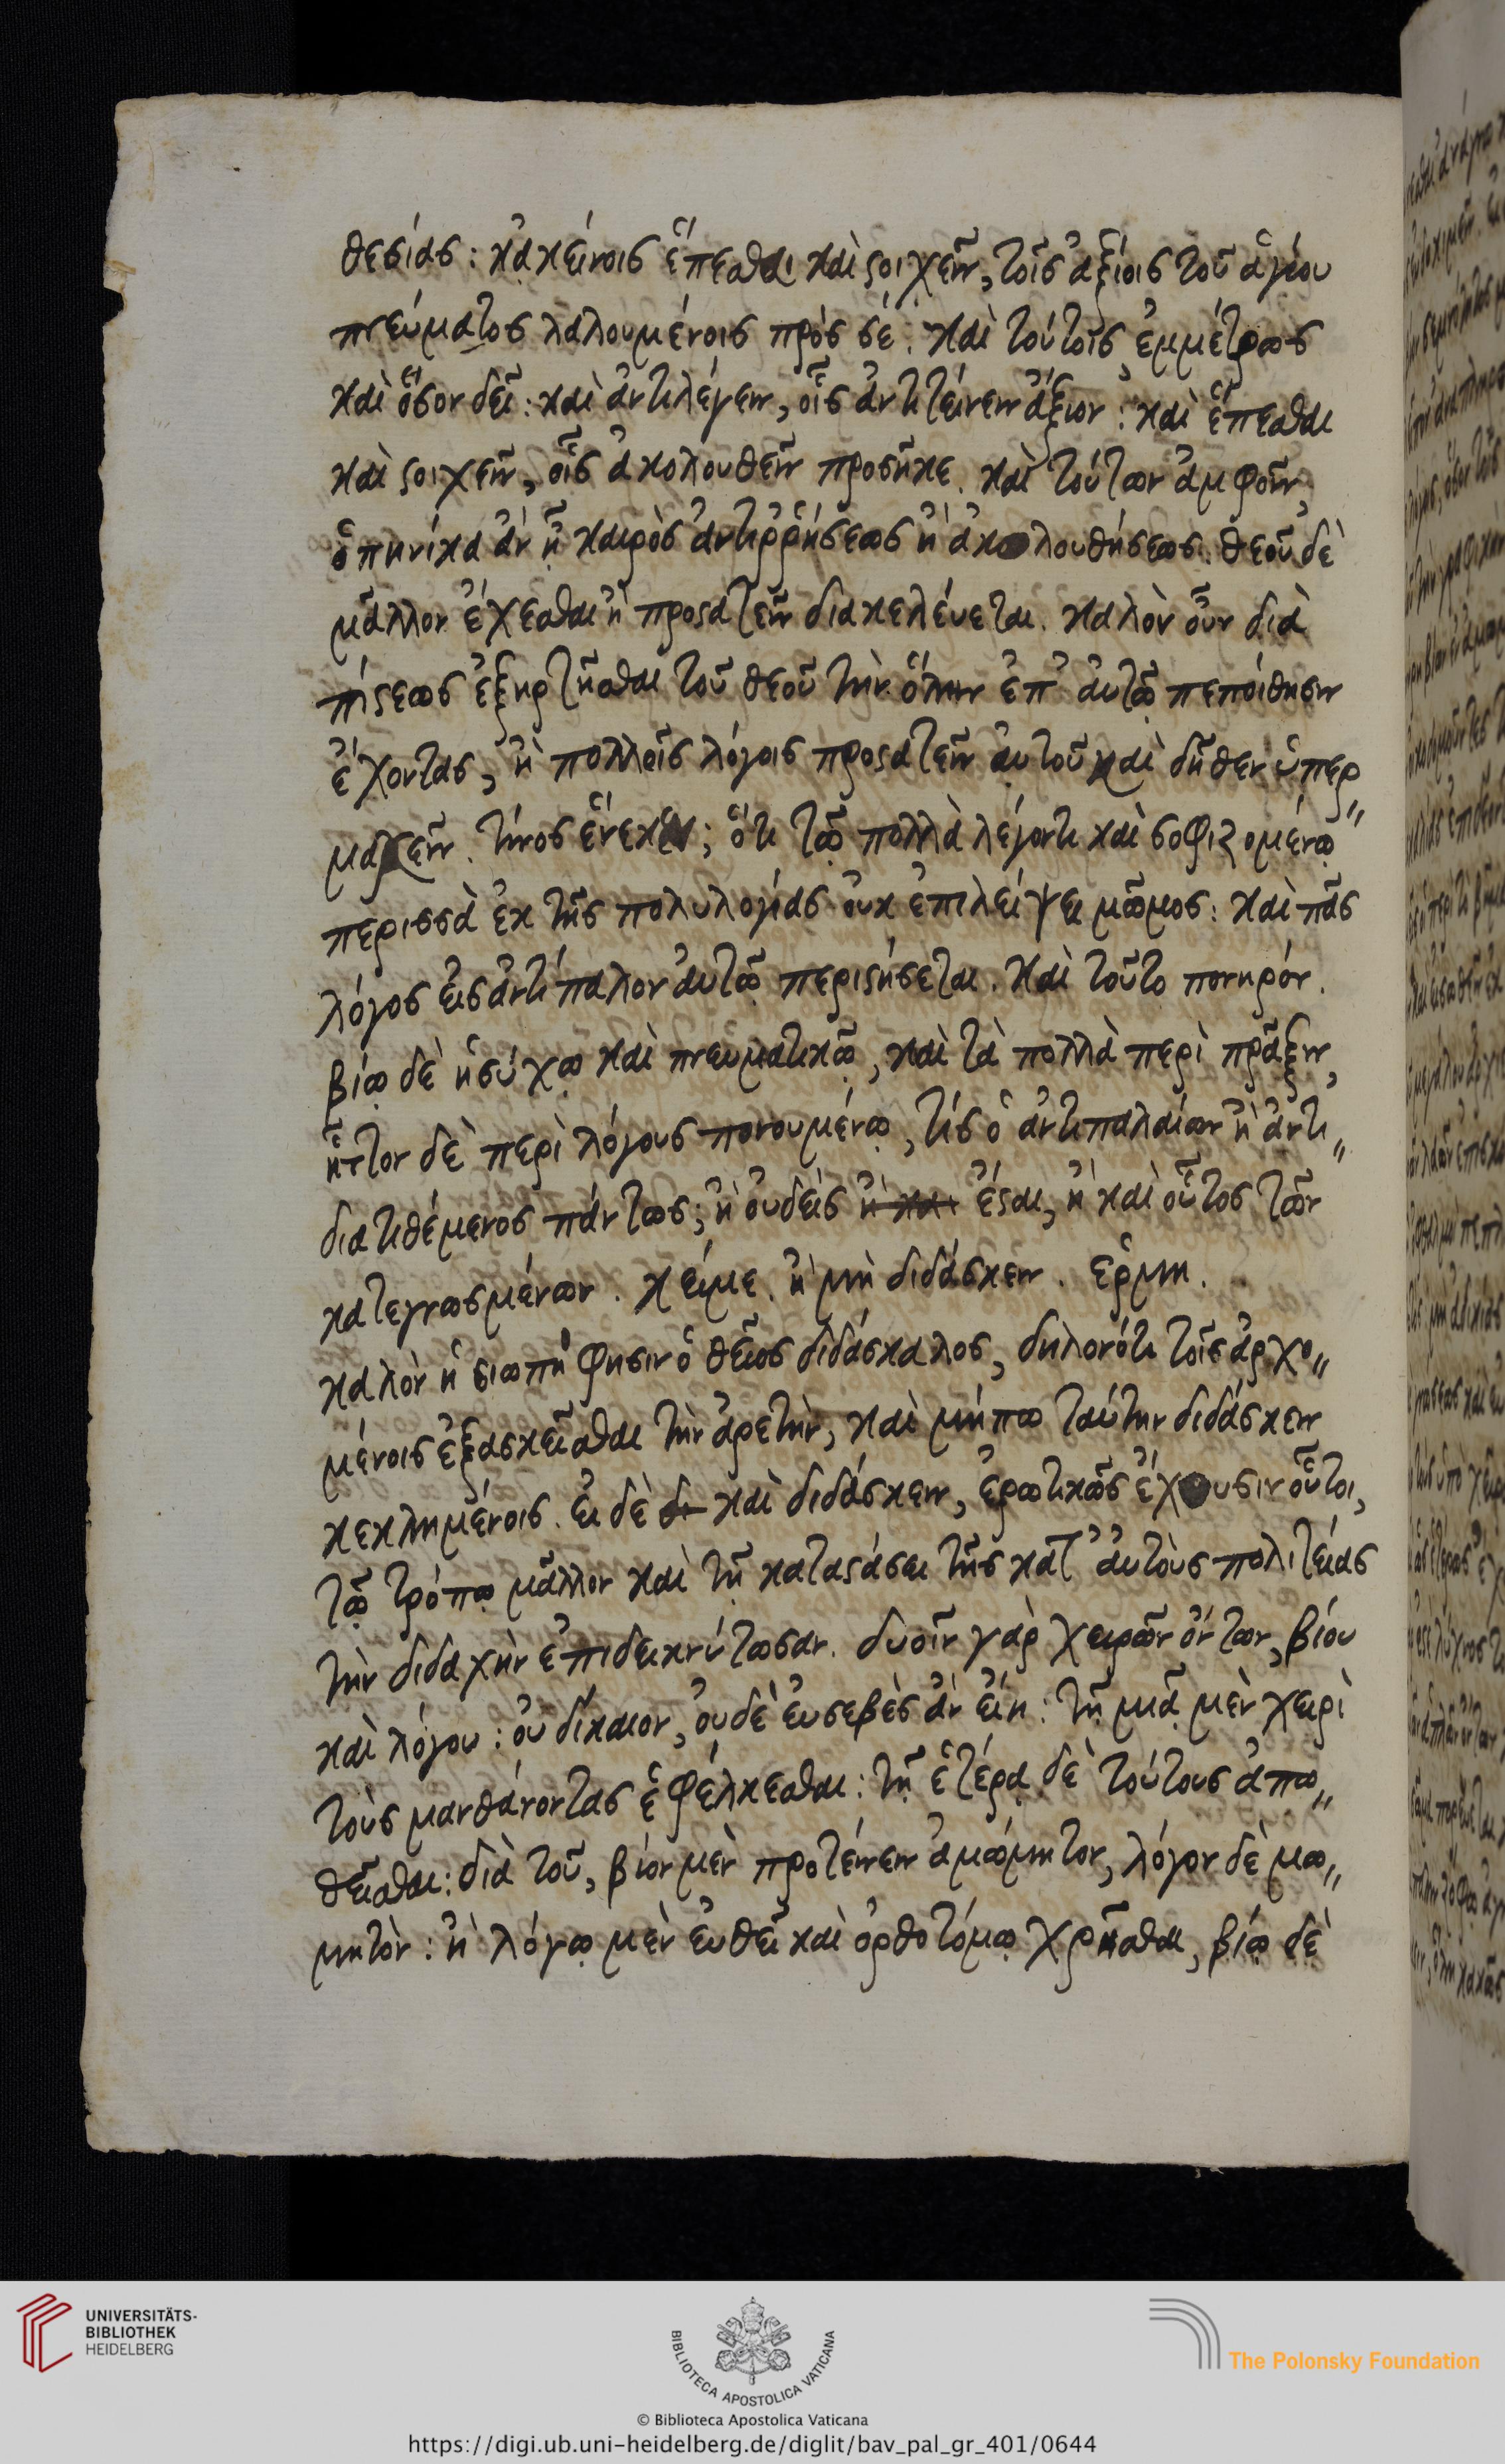 θεσίας: κἀκείνοις ἕπεσθαι καὶ στοιχεῖν, τοῖς ἀξίοις τοῦ ἁγίου
πνεύματος λαλουμένοις πρός σέ. καὶ τούτοις ἐμμέτρως
καὶ ὅσον δεῖ: καὶ ἀντιλέγειν, οἷς ἀντιτείνειν ἄξιον: καὶ ἕπεσθαι
καὶ στοιχεῖν, οἷς ἀκολουθεῖν προσῆκε. καὶ τούτων ἀμφοῖν,
ὁπηνίκα ἂν ᾖ καιρὸς ἀντιῤῥήσεως ἢ ἀκολουθήσεως. θεοῦ δὲ
μᾶλλον ἔχεσθαι ἢ προστατεῖν διακελεύεται. καλὸν οὖν διὰ
πίστεως ἐξηρτῆσθαι τοῦ θεοῦ τὴν ὅλην ἐπ' αὐτῷ πεποίθησιν
ἔχοντας, ἢ πολλοῖς λόγοις προστατεῖν αὐτοῦ καὶ δῆθεν ὑπερ"
μαχεῖν. τίνος ἕνεκεν; ὅτι τῷ πολλὰ λέγοντι καὶ σοφιζομένῳ
περισσὰ ἐκ τῆς πολυλογίας οὐκ ἐπιλείψει μῶμος: καὶ πᾶς
λόγος εἰς ἀντίπαλον αὐτῷ περιστήσεται. καὶ τοῦτο πονηρόν.
βίῳ δὲ ἡσύχῳ καὶ πνευματικῷ, καὶ τὰ πολλὰ περὶ πρᾶξιν,
ἧττον δὲ περὶ λόγους πονουμένῳ, τίς ὁ ἀντιπαλαίων ἢ ἀντι"
διατιθέμενος πάντως; ἢ οὐδεὶς ἢ και ἔσται, ἢ καὶ οὗτος τῶν
κατεγνωσμένων. κείμε. ἢ μὴ διδάσκειν. ἑρμη.
καλὸν ἡ σιωπή φησιν ὁ θεῖος διδάσκαλος, δηλονότι τοῖς ἀρχο"
μένοις ἐξασκεῖσθαι τὴν ἀρετὴν, καὶ μήπω ταύτην διδάσκειν
κεκλημένοις. εἰ δὲ δι καὶ διδάσκειν, ἐρωτικῶς ἔχουσιν οὗτοι,
τῷ τρόπῳ μᾶλλον καὶ τῇ καταστάσει τῆς κατ' αὐτοὺς πολιτείας
τὴν διδαχὴν ἐπιδεικνύτωσαν. δυοῖν γὰρ χειρῶν ὄντων, βίου
καὶ λόγου: οὐ δίκαιον, οὐδὲ εὐσεβὲς ἂν εἴη: τῇ μιᾷ μὲν χειρὶ
τοὺς μανθάνοντας ἐφέλκεσθαι: τῇ ἑτέρᾳ δὲ τούτους ἀπω"
θεῖσθαι: διὰ τοῦ, βίον μὲν προτείνειν ἀμώμητον, λόγον δὲ μω"
μητὸν: ἢ λόγῳ μὲν εὐθεῖ καὶ ὀρθοτόμῳ χρῆσθαι, βίῳ δὲ
UNIVERSITÄTS-
BIBLIOTHEK
HEIDELBERG
BIBLIOTECA APOSTOLICA VATICANA
The Polonsky Foundation
© Biblioteca Apostolica Vaticana
https://digi.ub.uni-heidelberg.de/diglit/bav_pal_gr_401/0644